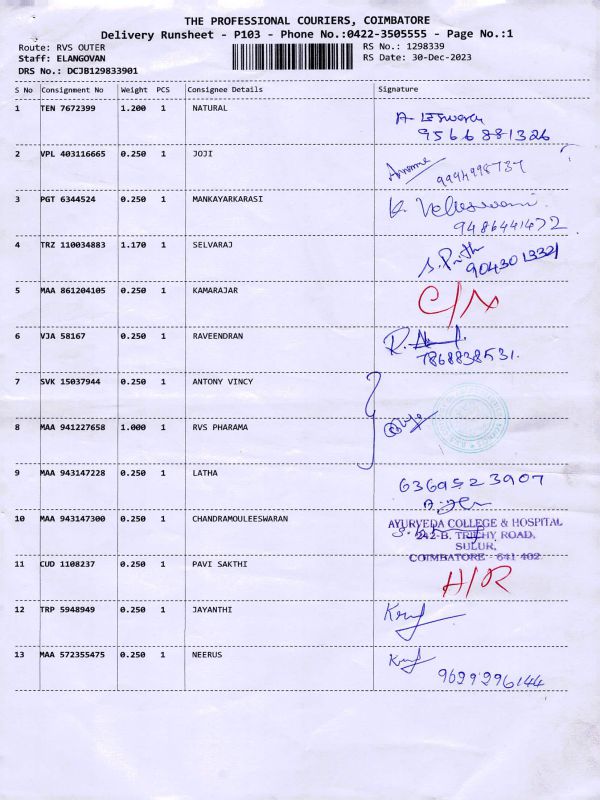 THE PROFESSIONAL COURIERS, COIMBATORE
Delivery Runsheet - P103 - Phone No.:0422-3505555 - Page No.:1
Route: RVS OUTER RS No.: 1298339
Staff: ELANGOVAN RS Date: 30-Dec-2023
DRS No.: DCJB129833901
S No Consignment No Weight PCS Consignee Details Signature
1 TEN 7672399 1.200 1 NATURAL
9566881326
2 VPL 403116665 0.250 1 JOJI
9994998737
3 PGT 6344524 0.250 1 MANKAYARKARASI
9486441472
4 TRZ 110034883 1.170 1 SELVARAJ
5 MAA 861204105 0.250 1 KAMARAJAR
6 VJA 58167 0.250 1 RAVEENDRAN
7868838531.
7 SVK 15037944 0.250 1 ANTONY VINCY
8 MAA 941227658 1.000 1 RVS PHARAMA
9 MAA 943147228 0.250 1 LATHA
6369523907
10 MAA 943147300 0.250 1 CHANDRAMOULEESWARAN
AYURVEDA COLLEGE & HOSPITAL
242-B. TRICHY ROAD,
SULUR,
COIMBATORE - 641 402
11 CUD 1108237 0.250 1 PAVI SAKTHI H/R
12 TRP 5948949 0.250 1 JAYANTHI
13 MAA 572355475 0.250 1 NEERUS
9629296144